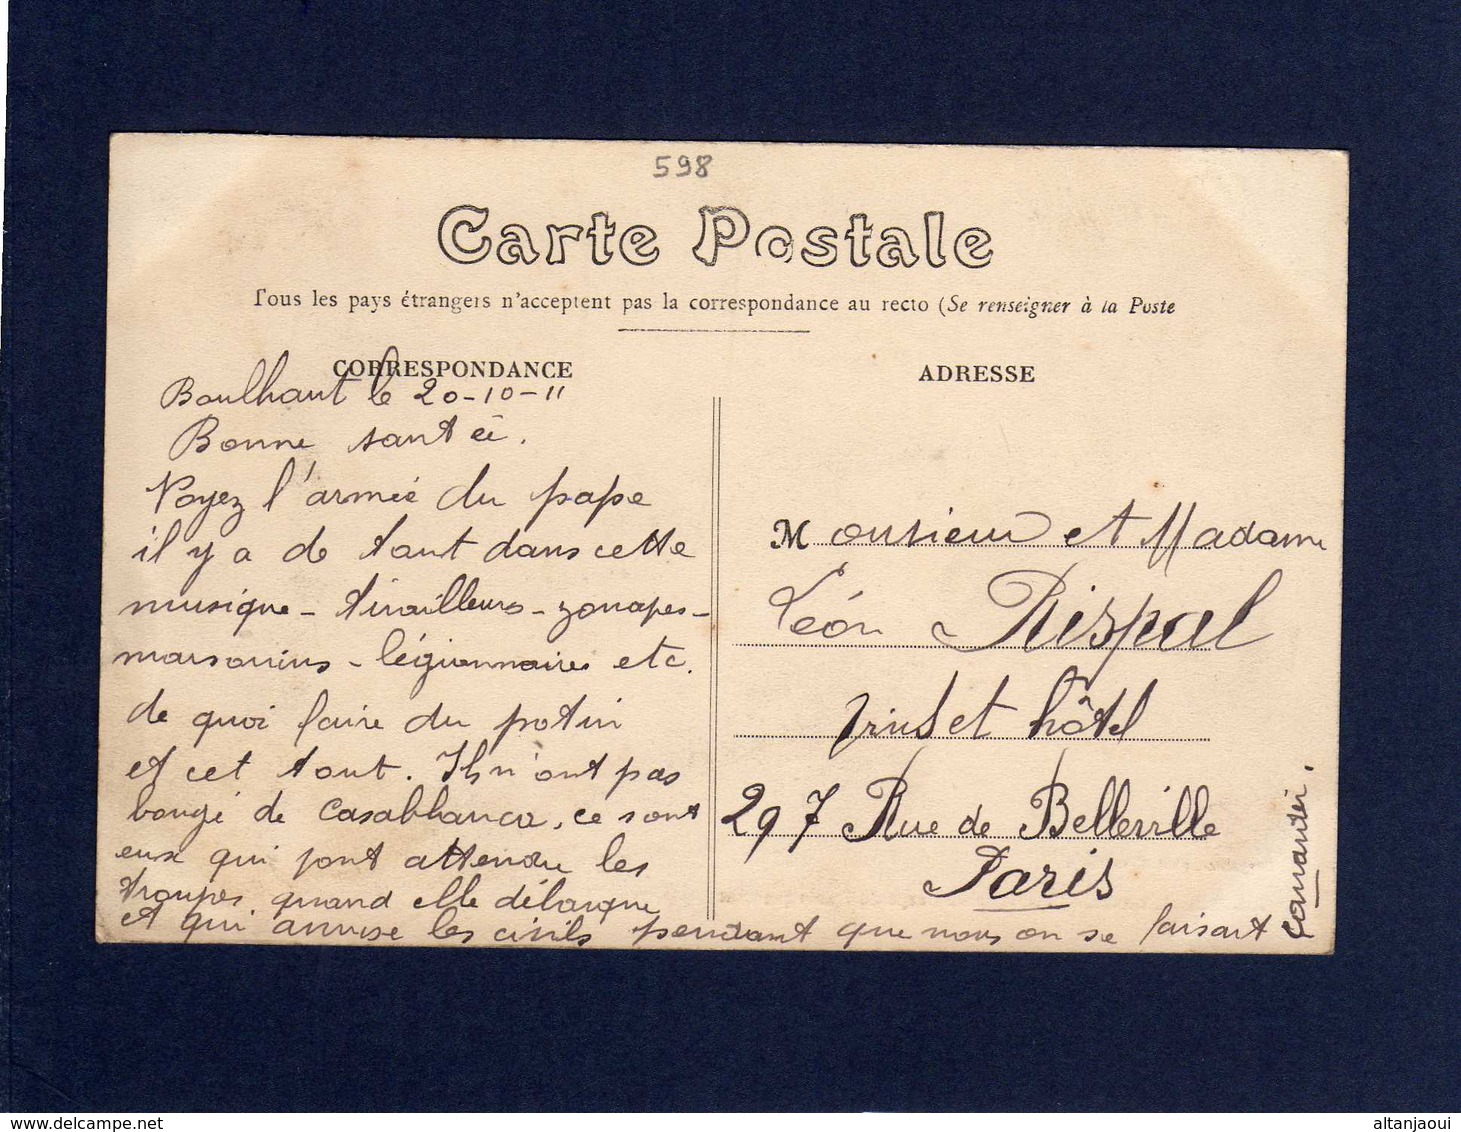 598
Carte Postale
Tous les pays étrangers n'acceptent pas la correspondance au recto (Se renseigner à la Poste
CORRESPONDANCE
Boulhaut le 20-10-11
Bonne santée.
Voyez l'armée du pape
il y a de tout dans cette
musique - tirailleurs - zouapes -
marsouins - légionnaires etc.
de quoi faire du potin
et cet tout. Ils n'ont pas
bougé de Casablanca, ce sont
eux qui vont attendre les
troupes quand elle débarque
et qui amuse les civils pendant que nous on se faisait
ADRESSE
Monsieur et Madame
Léon Rispal
vins et hôtel
297 Rue de Belleville
Paris
altanjaoui